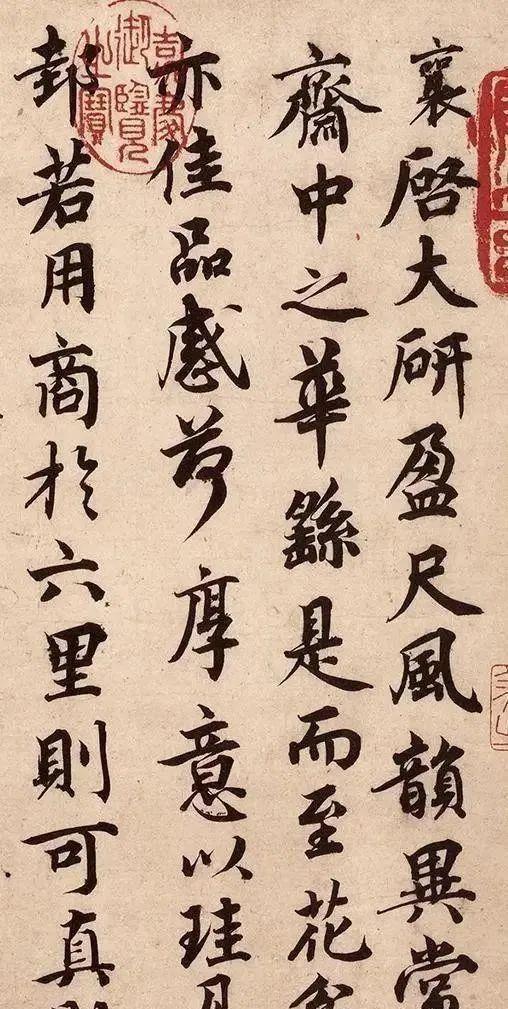 襄啓大研盈尺風韻異常
齋中之華繇是而至花
亦佳品感荷厚意以珪
邽若用商於六里則可真
嘉慶御覽之寶